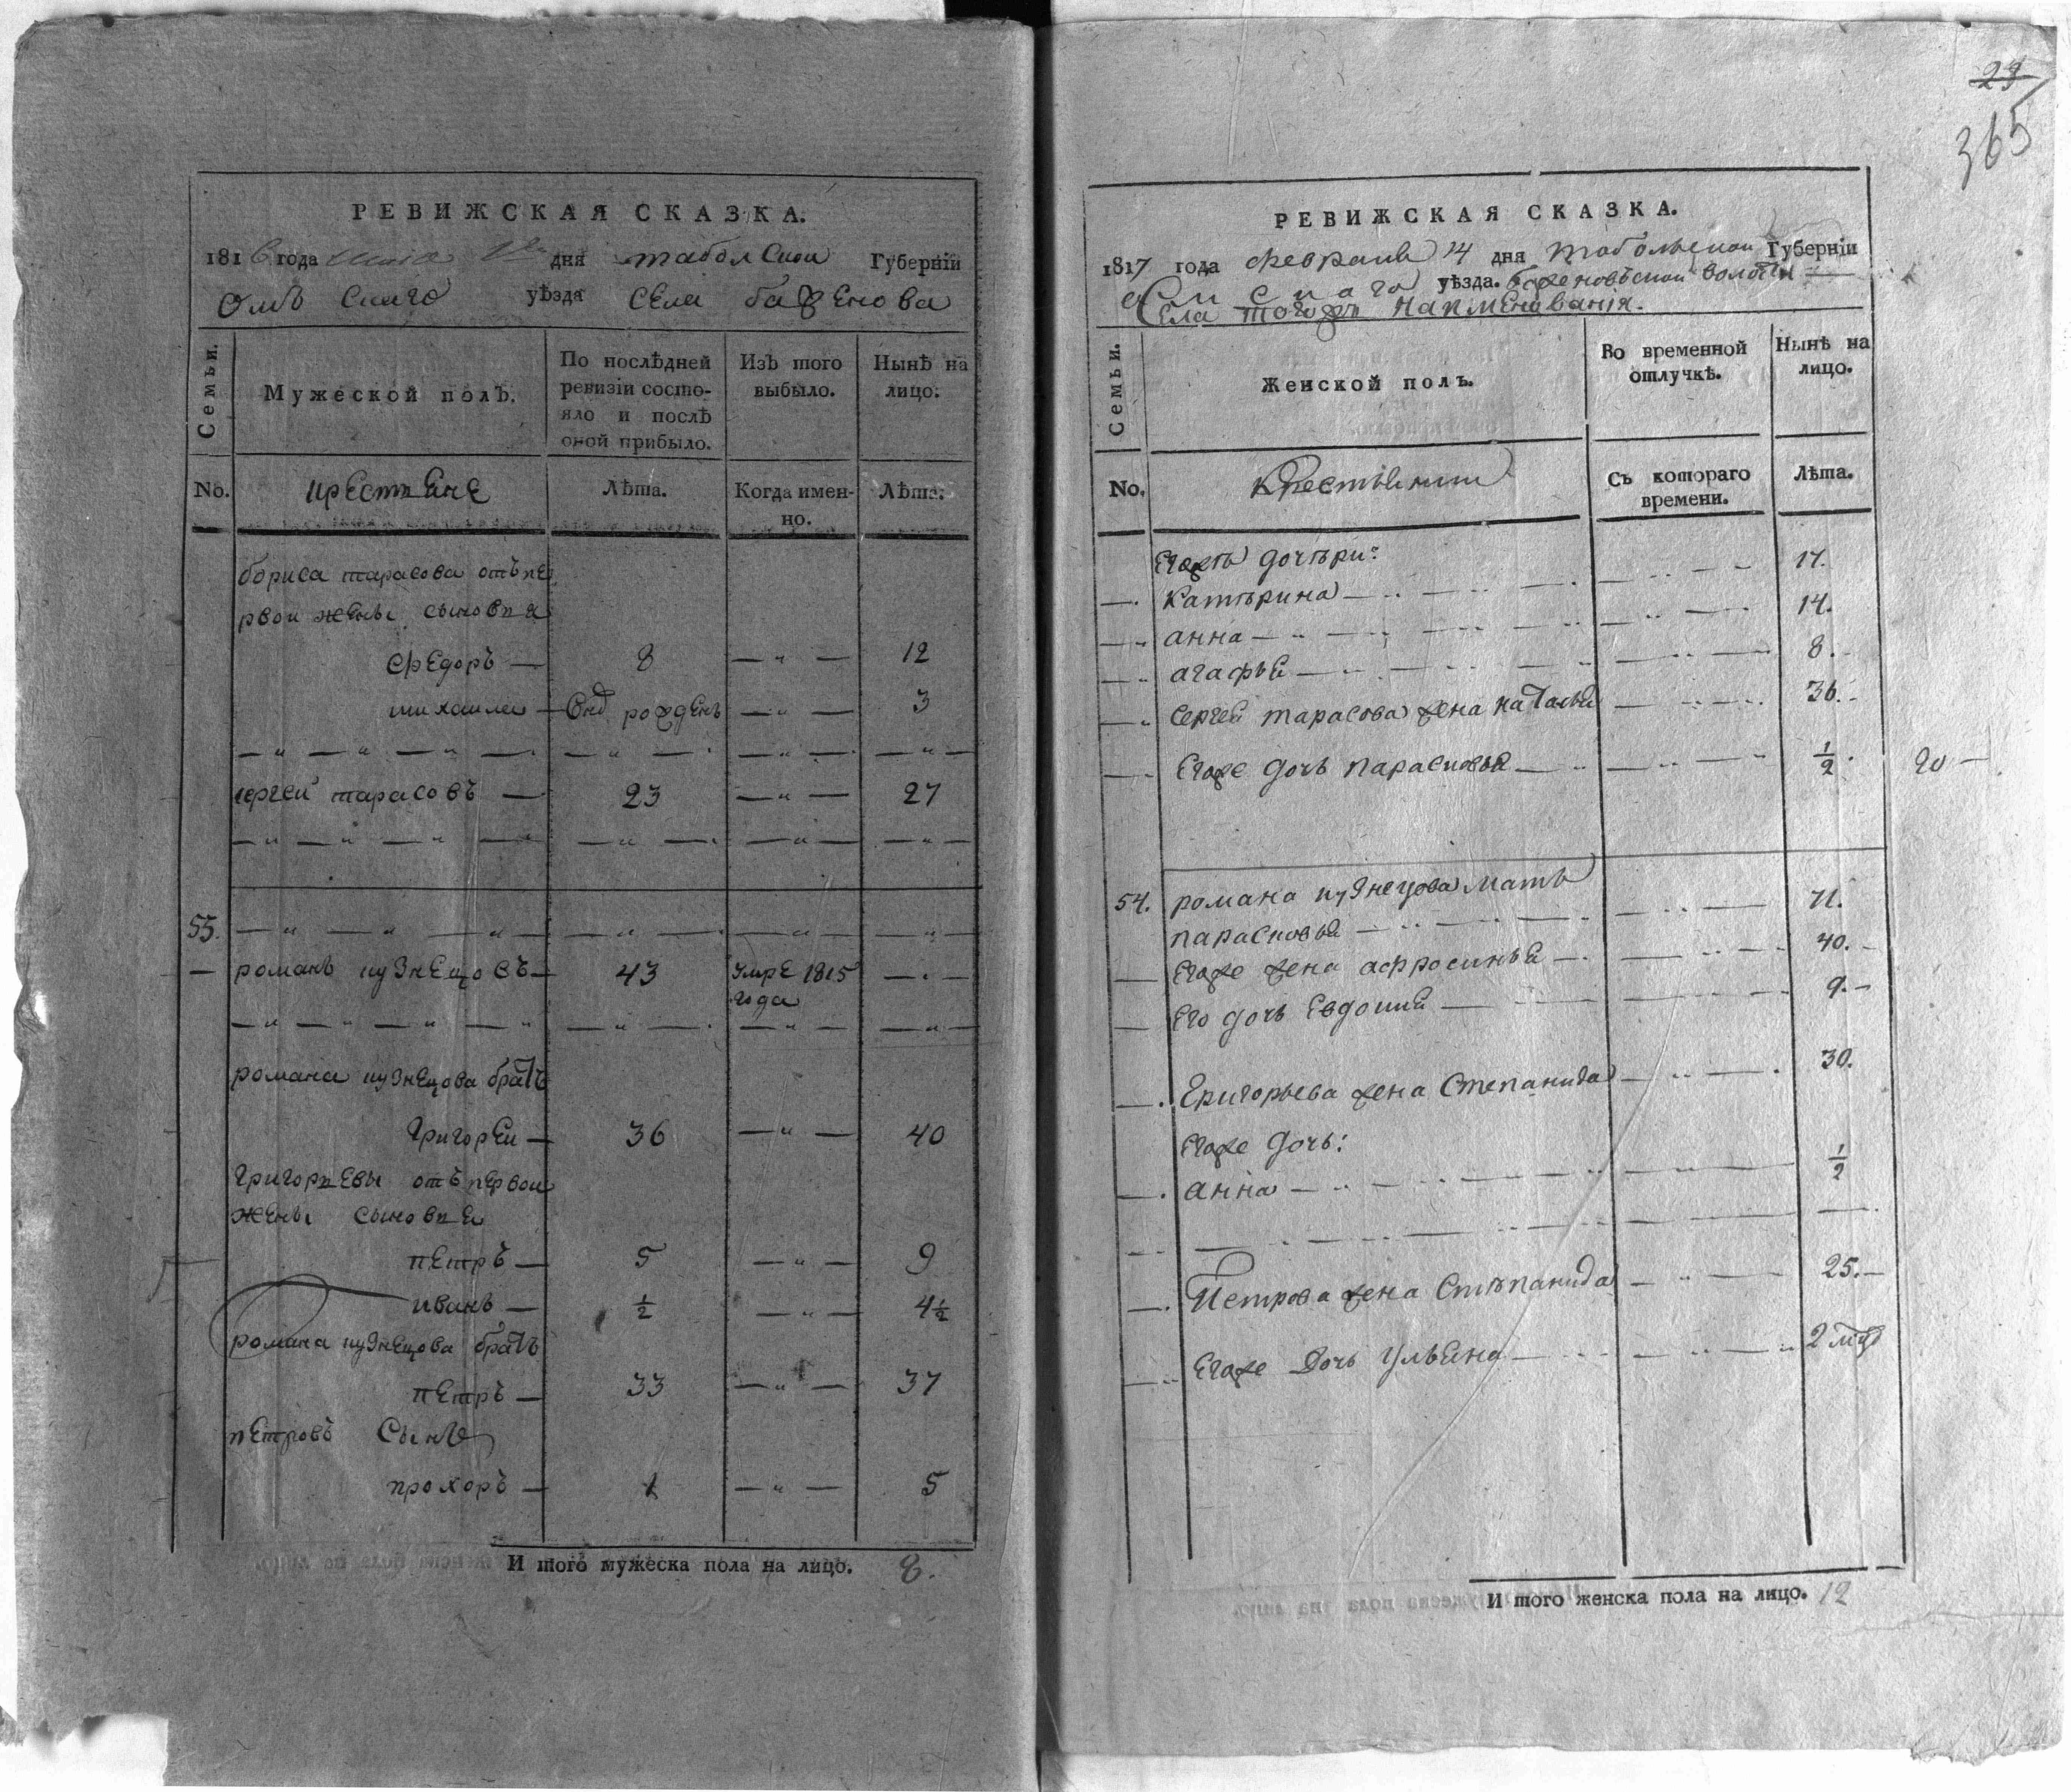 РЕВИЖСКАЯ СКАЗКА.
1816 года дня таболской Губерніи
Омъ скаго уѣзда села баженова
Семьи.
Мужеской полъ.
По послѣдней ревизіи состояло и послѣ оной прибыло.
Изъ того выбыло.
Нынѣ на лицо.
No.
крестьяне
Лѣта.
Когда именно.
Лѣта.
бориса тарасова отъ пе
рвой жены сыновья
Федоръ — 8 — " — 12
михаила — рожденъ — " — 3
— " — " — " — — " — — " — — " —
сергей тарасовъ — 23 — " — 27
— " — " — " — — " — — " — — " —
55. — " — " — " — — " — — " — — " —
— романъ кузнецовъ — 43 умре 1815 — " —
года
— " — " — " — " — " — — " — — " —
романа кузнецова братъ
Григорей — 36 — " — 40
Григорьевы отъ первой
жены сыновья
петръ — 5 — " — 9
иванъ — ½ — " — 4½
романа кузнецова братъ
петръ — 33 — " — 37
петровъ Сынъ
прохоръ — 1 — " — 5
И того мужеска пола на лицо. 8.
29
365
РЕВИЖСКАЯ СКАЗКА.
1817 года февраля 14 дня тобольской Губерніи
Омскаго уѣзда. баженовской волости
Села тогожъ наименованія.
Семьи.
Женской полъ.
Во временной отлучкѣ.
Нынѣ на лицо.
No.
крестьянки
Съ котораго времени.
Лѣта.
Егожъ дочѣри:
—. Катѣрина — 17.
— " анна — 14.
— " агафья — 8.
— " Сергея тарасова жена наталья — 36.
— Егоже дочь парасковья — ½.
20 —
54. романа кузнецова мать
парасковья — 71.
— Егоже жена афросинья — 40.
— Его дочь Евдокия — 9.
—. Григорьева жена Степанида — 30.
Егоже дочь:
—. анна — ½
—. Петрова жена Стѣпанида — 25.
— Егоже Дочь Ульяна — 2
И того женска пола на лицо. 12